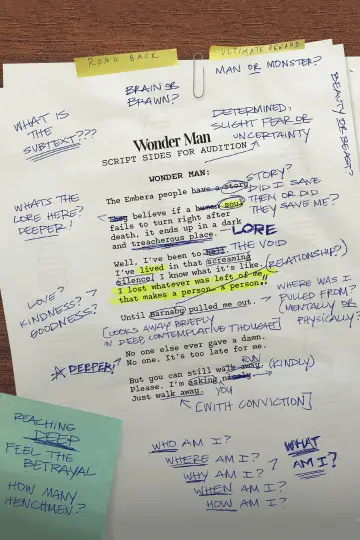 ROAD BACK
ULTIMATE REWARD
BRAIN OR
BRAWN?
MAN OR MONSTER?
BEAUTY OR BEAST?
WHAT IS
THE
SUBTEXT???
DETERMINED,
SLIGHT FEAR OR
UNCERTAINTY
Wonder Man
SCRIPT SIDES FOR AUDITION
WONDER MAN:
STORY?
DID I SAVE
THEM OR DID
THEY SAVE ME?
WHATS THE
LORE HERE?
DEEPER!
The Embera people have a story
They believe if a human soul
fails to turn right after
death, it ends up in a dark
and treacherous place.
LORE
Well, I've been to hell. THE VOID
I've lived in that screaming
silence! I know what it's like.
I lost whatever was left of me,
that makes a person, a person..
(RELATIONSHIP?)
LOVE?
KINDNESS?
GOODNESS?
Until Barnaby pulled me out.
WHERE WAS I
PULLED FROM?
(MENTALLY OR
PHYSICALLY?
[LOOKS AWAY BRIEFLY
IN DEEP CONTEMPLATIVE THOUGHT]
No one else ever gave a damn.
No one. It's too late for me.
DEEPER!
RUN
But you can still walk away.
Please. I'm asking nicely (KINDLY)
Just walk away. YOU
[WITH CONVICTION]
REACHING
DEEP
FEEL THE
BETRAYAL
HOW MANY
HENCHMEN?
WHO AM I?
WHERE AM I?
WHY AM I?
WHEN AM I?
HOW AM I?
WHAT
AM I?